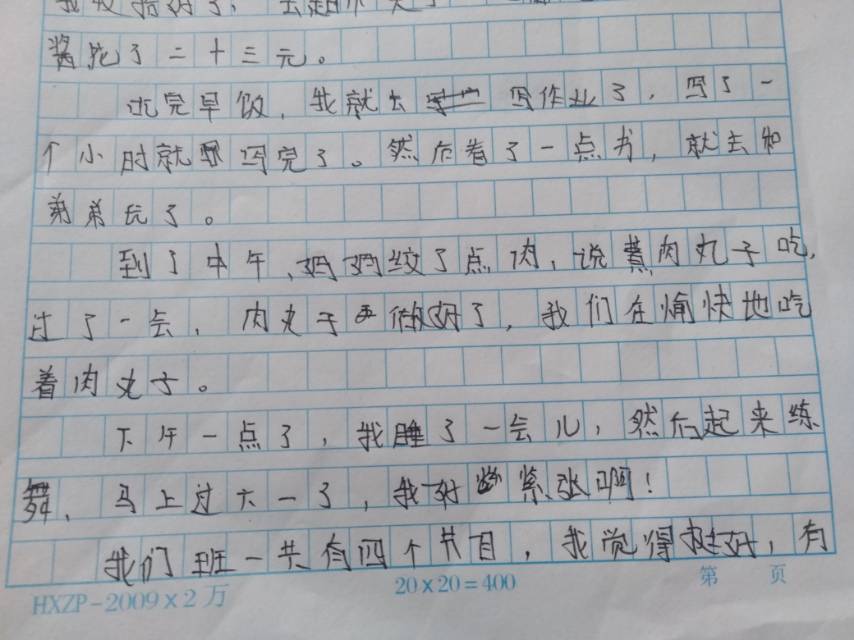 酱花了二十三元。
吃完早饭，我就去写作业了，写了一
个小时就写完了。然后看了一点书，就去和
弟弟玩了。
到了中午，妈妈绞了点肉，说煮肉丸子吃，
过了一会，肉丸子做好了，我们在愉快地吃
着肉丸子。
下午一点了，我睡了一会儿，然后起来练
舞，马上过六一了，我好紧张啊！
我们班一共有四个节目，我觉得挺好，有
HXZP-2009×2万
20×20=400
第 页